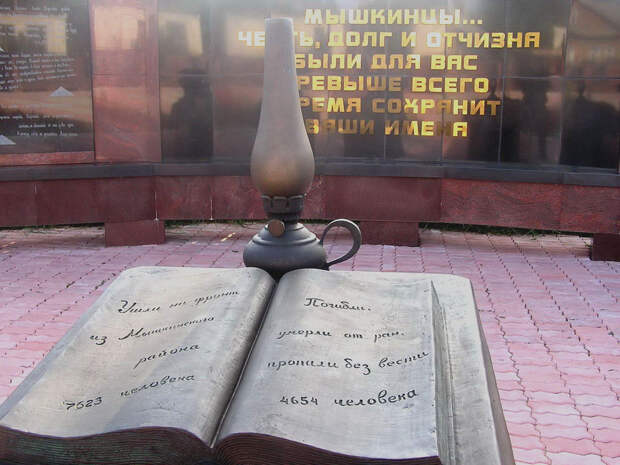 МЫШКИНЦЫ...
ЧЕСТЬ, ДОЛГ И ОТЧИЗНА
БЫЛИ ДЛЯ ВАС
ПРЕВЫШЕ ВСЕГО
ВРЕМЯ СОХРАНИТ
ВАШИ ИМЕНА
Ушли на фронт
из Мышкинского
района
7623 человека
Погибли,
умерли от ран,
пропали без вести
4654 человека